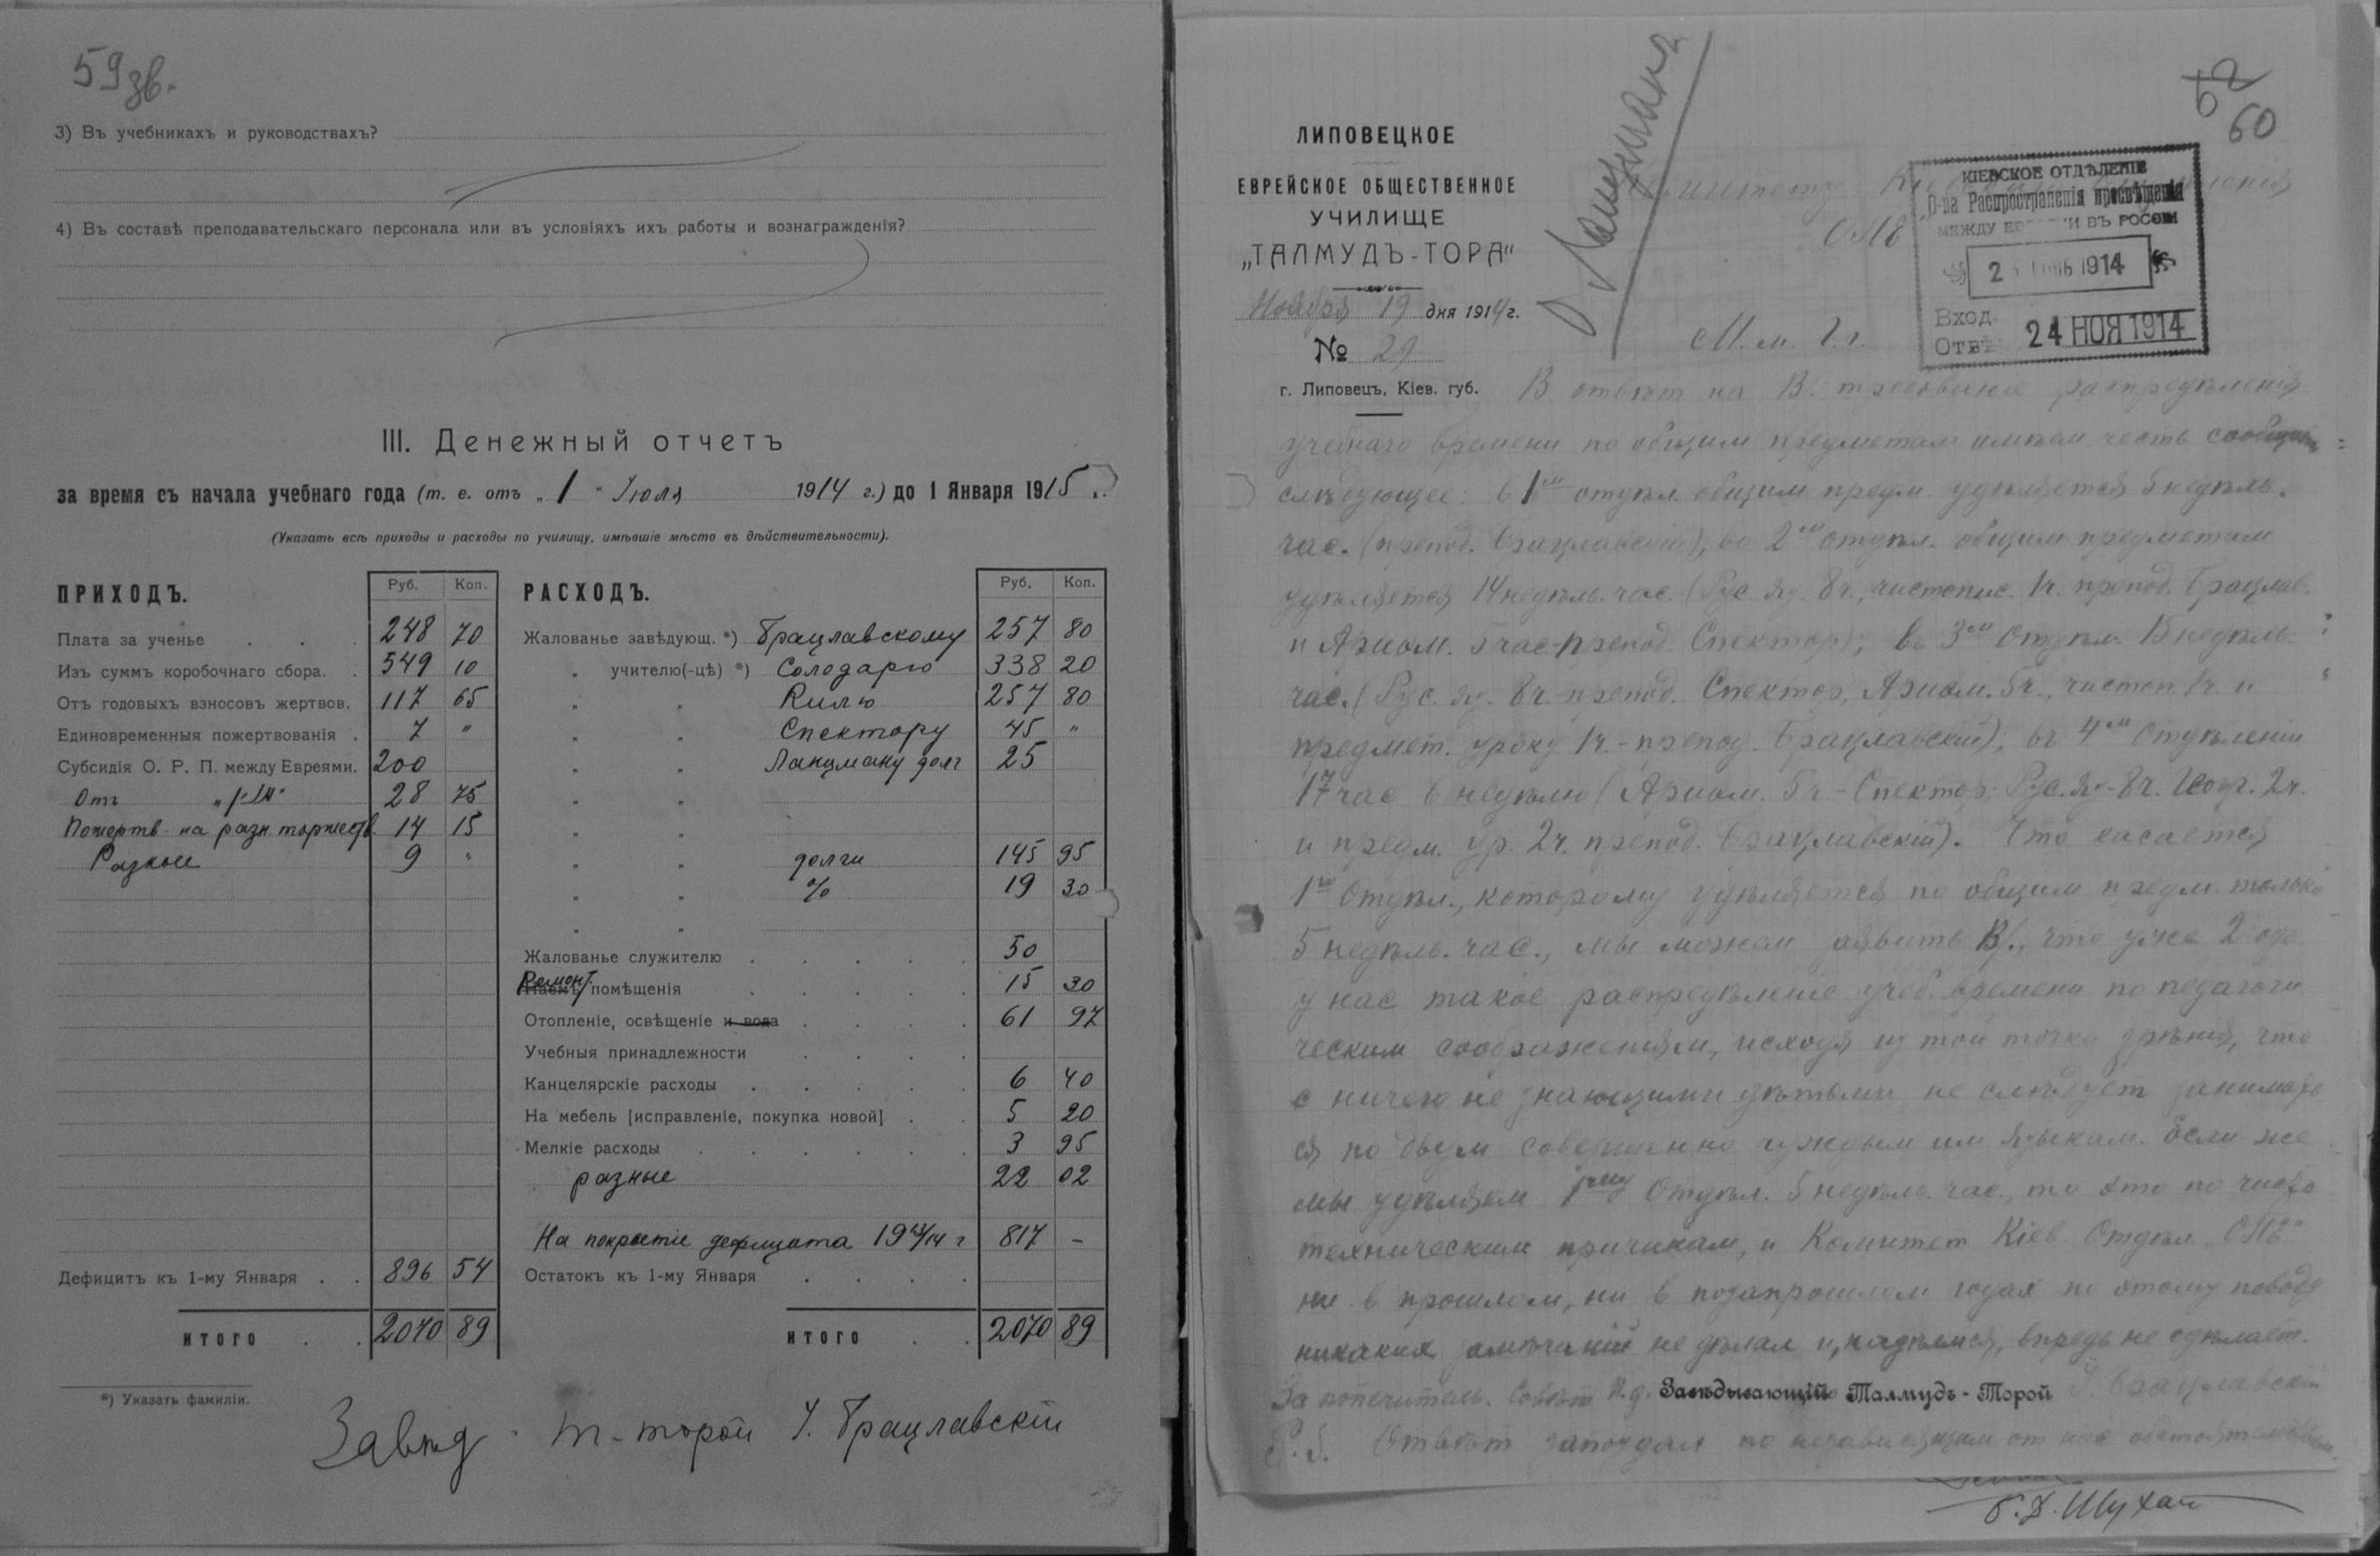 59 зв.
3) Въ учебникахъ и руководствахъ?
4) Въ составѣ преподавательскаго персонала или въ условіяхъ ихъ работы и вознагражденія?
III. Денежный отчетъ
за время съ начала учебнаго года (т. е. отъ „ 1 " Іюля 1914 г.) до 1 Января 1915 г.
(Указать всѣ приходы и расходы по училищу, имѣвшіе мѣсто въ дѣйствительности).
ПРИХОДЪ. Руб. Коп.
Плата за ученье . . . 248 70
Изъ суммъ коробочнаго сбора. . 549 10
Отъ годовыхъ взносовъ жертвов. 117 65
Единовременныя пожертвованія . 7 "
Субсидія О. Р. П. между Евреями. 200
Отъ 28 75
Пожертв. на разн. торжеств. 14 15
Разные 9 "
Дефицитъ къ 1-му Января . . 896 54
ИТОГО . . 2070 89
РАСХОДЪ. Руб. Коп.
Жалованье завѣдующ. *) Брацлавскому 257 80
„ учителю(-цѣ) *) Солодарю 338 20
„ „ Килю 257 80
„ „ Спектору 45 "
„ „ Ланцману долг 25
„ „
„ „
„ „ долги 145 95
„ „ % 19 30
„ „
Жалованье служителю . . . . . 50
Ремонт. Наемъ помѣщенія . . . . . 15 30
Отопленіе, освѣщеніе и вода . . . . 61 97
Учебныя принадлежности . . . .
Канцелярскіе расходы . . . . . 6 40
На мебель [исправленіе, покупка новой] . . 5 20
Мелкіе расходы . . . . . . 3 95
разные 22 02
На покрытіе дефицита 1913/14 г 817 –
Остатокъ къ 1-му Января . . . .
ИТОГО . . 2070 89
*) Указать фамиліи.
Завѣд. Т-торой І. Брацлавскій
60
ЛИПОВЕЦКОЕ
ЕВРЕЙСКОЕ ОБЩЕСТВЕННОЕ
УЧИЛИЩЕ
„ТАЛМУДЪ-ТОРА"
Ноября 19 дня 1914 г.
№ 29
г. Липовецъ, Кіев. губ.
Комитету
КІЕВСКОЕ ОТДѢЛЕНІЕ
О-ва Распространенія просвѣщенія
МЕЖДУ ЕВ И ВЪ РОССІИ
1914
Вход.
Отвѣ
24 НОЯ 1914
М. м. Г. г.
В отвѣт на В. требованіе распредѣленія
учебнаго времени по общим предметам имѣем честь сообщить
слѣдующее: в 1ом отдѣл. общим предм. удѣляется 5 недѣль.
час. (препод. Брацлавскій); во 2ом отдѣл. общим предметам
удѣляется 14 недѣль. час. (Рус. яз. 8 ч., чистопис. 1ч. препод. Брацлав.
и Ариѳм. 5 час - препод. Спектор); въ 3ем Отдѣл. 15 недѣль.
час. (Рус. яз. 8ч. препод. Спектор, Ариѳм. 5ч., чистоп. 1ч. и
предмет. уроку 1ч. - препод. Брацлавскій); въ 4ом Отдѣленіи
17 час в недѣлю (Ариѳм. 5ч. - Спектор; Рус. Яз. - 8ч. 2ч.
и предм. ур. 2ч. препод. Брацлавскій). Что касается
1го Отдѣл., которому удѣляется по общим предм. только
5 недѣль. час., мы можем заявить В/., что уже 2 года
у нас такое распредѣленіе учеб. времени по педагоги
ческим соображеніям, исходя из той точки зрѣнія, что
с ничего не знающими дѣтьми не слѣдует занимать
ся по двум совершенно чуждым им языкам. Если же
мы удѣляем 1ому Отдѣл. 5 недѣль. час., то это по чисто
техническим причинам, и Комитет Кіев. Отдѣл. „ОПЕ"
ни в прошлом, ни в позапрошлом годах по этому поводу
никаких замѣчаній не дѣлал и, надѣемся, впредь не сдѣлает.
За попечитель. Совѣт И. д. Завѣдывающій Талмудъ-Торой І. Брацлавскій
P. S. Отвѣт запоздал по независящим от нас обстоятельствам